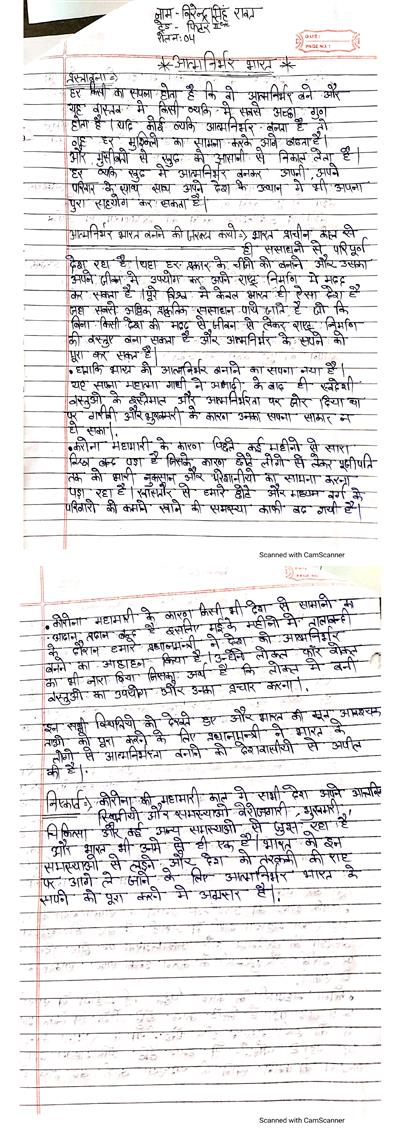 नाम - विरेन्द्र सिंह रावत
ट्रेड - फिटर
रोल न. 04
DATE:
PAGE NO.:
* आत्मनिर्भर भारत *
प्रस्तावना :-
हर किसी का सपना होता है कि वो आत्मनिर्भर बने और
यह वास्तव में किसी व्यक्ति में सबसे अच्छा गुण
होता है। यदि कोई व्यक्ति आत्मनिर्भर बनता है तो
वह हर मुश्किलो का सामना करके आगे बढता है।
और मुसीबतो से खुद को आसानी से निकाल लेता है।
हर व्यक्ति खुद में आत्मनिर्भर बनकर अपनी, अपने
परिवार के साथ साथ अपने देश के उत्थान में भी अपना
पुरा सहयोग कर सकता है।
आत्मनिर्भर भारत बनने की जरूरत क्यो :- भारत प्राचीन काल से
ही संसाधनो से परिपूर्ण
देश रहा है। यहा हर प्रकार के चीजो को बनाने और उसका
अपने जीवन में उपयोग कर अपने राष्ट्र निर्माण में मदद
कर सकता है। पुरे विश्व में केवल भारत ही ऐसा देश है
जहा सबसे अधिक प्राकृतिक संसाधन पाये जाते है जो कि
बिना किसी देश की मदद से जीवन से लेकर राष्ट्र निर्माण
की वस्तुए बना सकता है और आत्मनिर्भर के सपने को
पूरा कर सकता है।
• हालाकि भारत को आत्मनिर्भर बनाने का सपना नया है।
यह सपना महात्मा गाधी ने आजादी के बाद ही स्वदेशी
वस्तुओ के इस्तेमाल और आत्मनिर्भरता पर जोर दिया था
पर गरीबी और भुखमरी के कारण उनका सपना साकार न
हो सका।
• कोरोना महामारी के कारण पिछले कई महीनो से सारा
विश्व बन्द पडा है जिसके कारण छोटे लोगो से लेकर पूंजीपति
तक को भारी नुकसान और परेशानीयो का सामना करना
पड रहा है। खासतौर से हमारे छोटे और माध्यम वर्ग के
परिवारो की कमाने खाने की समस्या काफी बढ गयी है।
Scanned with CamScanner
• कोरोना महामारी के कारण किसी भी देश से सामानो का
आदान प्रदान बन्द है इसलिए मई के महीने में तालाबन्दी
के दौरान हमारे प्रधानमन्त्री ने देश को आत्मनिर्भर
बनने का आह्वाहन किया है। उन्होने लोकल फॉर वोकल
का भी नारा दिया जिसका अर्थ है कि लोकल में बनी
वस्तुओ का उपयोग और उनका प्रचार करना।
इन सभी स्थितियो को देखते हुए और भारत की मूल आवश्यक
ताओ को पूरा करने के लिए प्रधानमन्त्री ने भारत के
लोगो से आत्मनिर्भरता बनाने को देशवासीयो से अपील
की है।
निष्कर्ष :- कोरोना की महामारी काल में सभी देश अपने आन्तरिक
स्थितीयो और समस्याओ बेरोजगारी, भुखमरी,
चिकित्सा और कई अन्य समस्याओ से जुझ रहा है,
और भारत भी उनमे से ही एक है। भारत को इन
समस्याओ से लड़ने और देश को तरक्की की राह
पर आगे ले जाने के लिए आत्मनिर्भर भारत के
सपने को पूरा करने में अग्रसर है।
Scanned with CamScanner